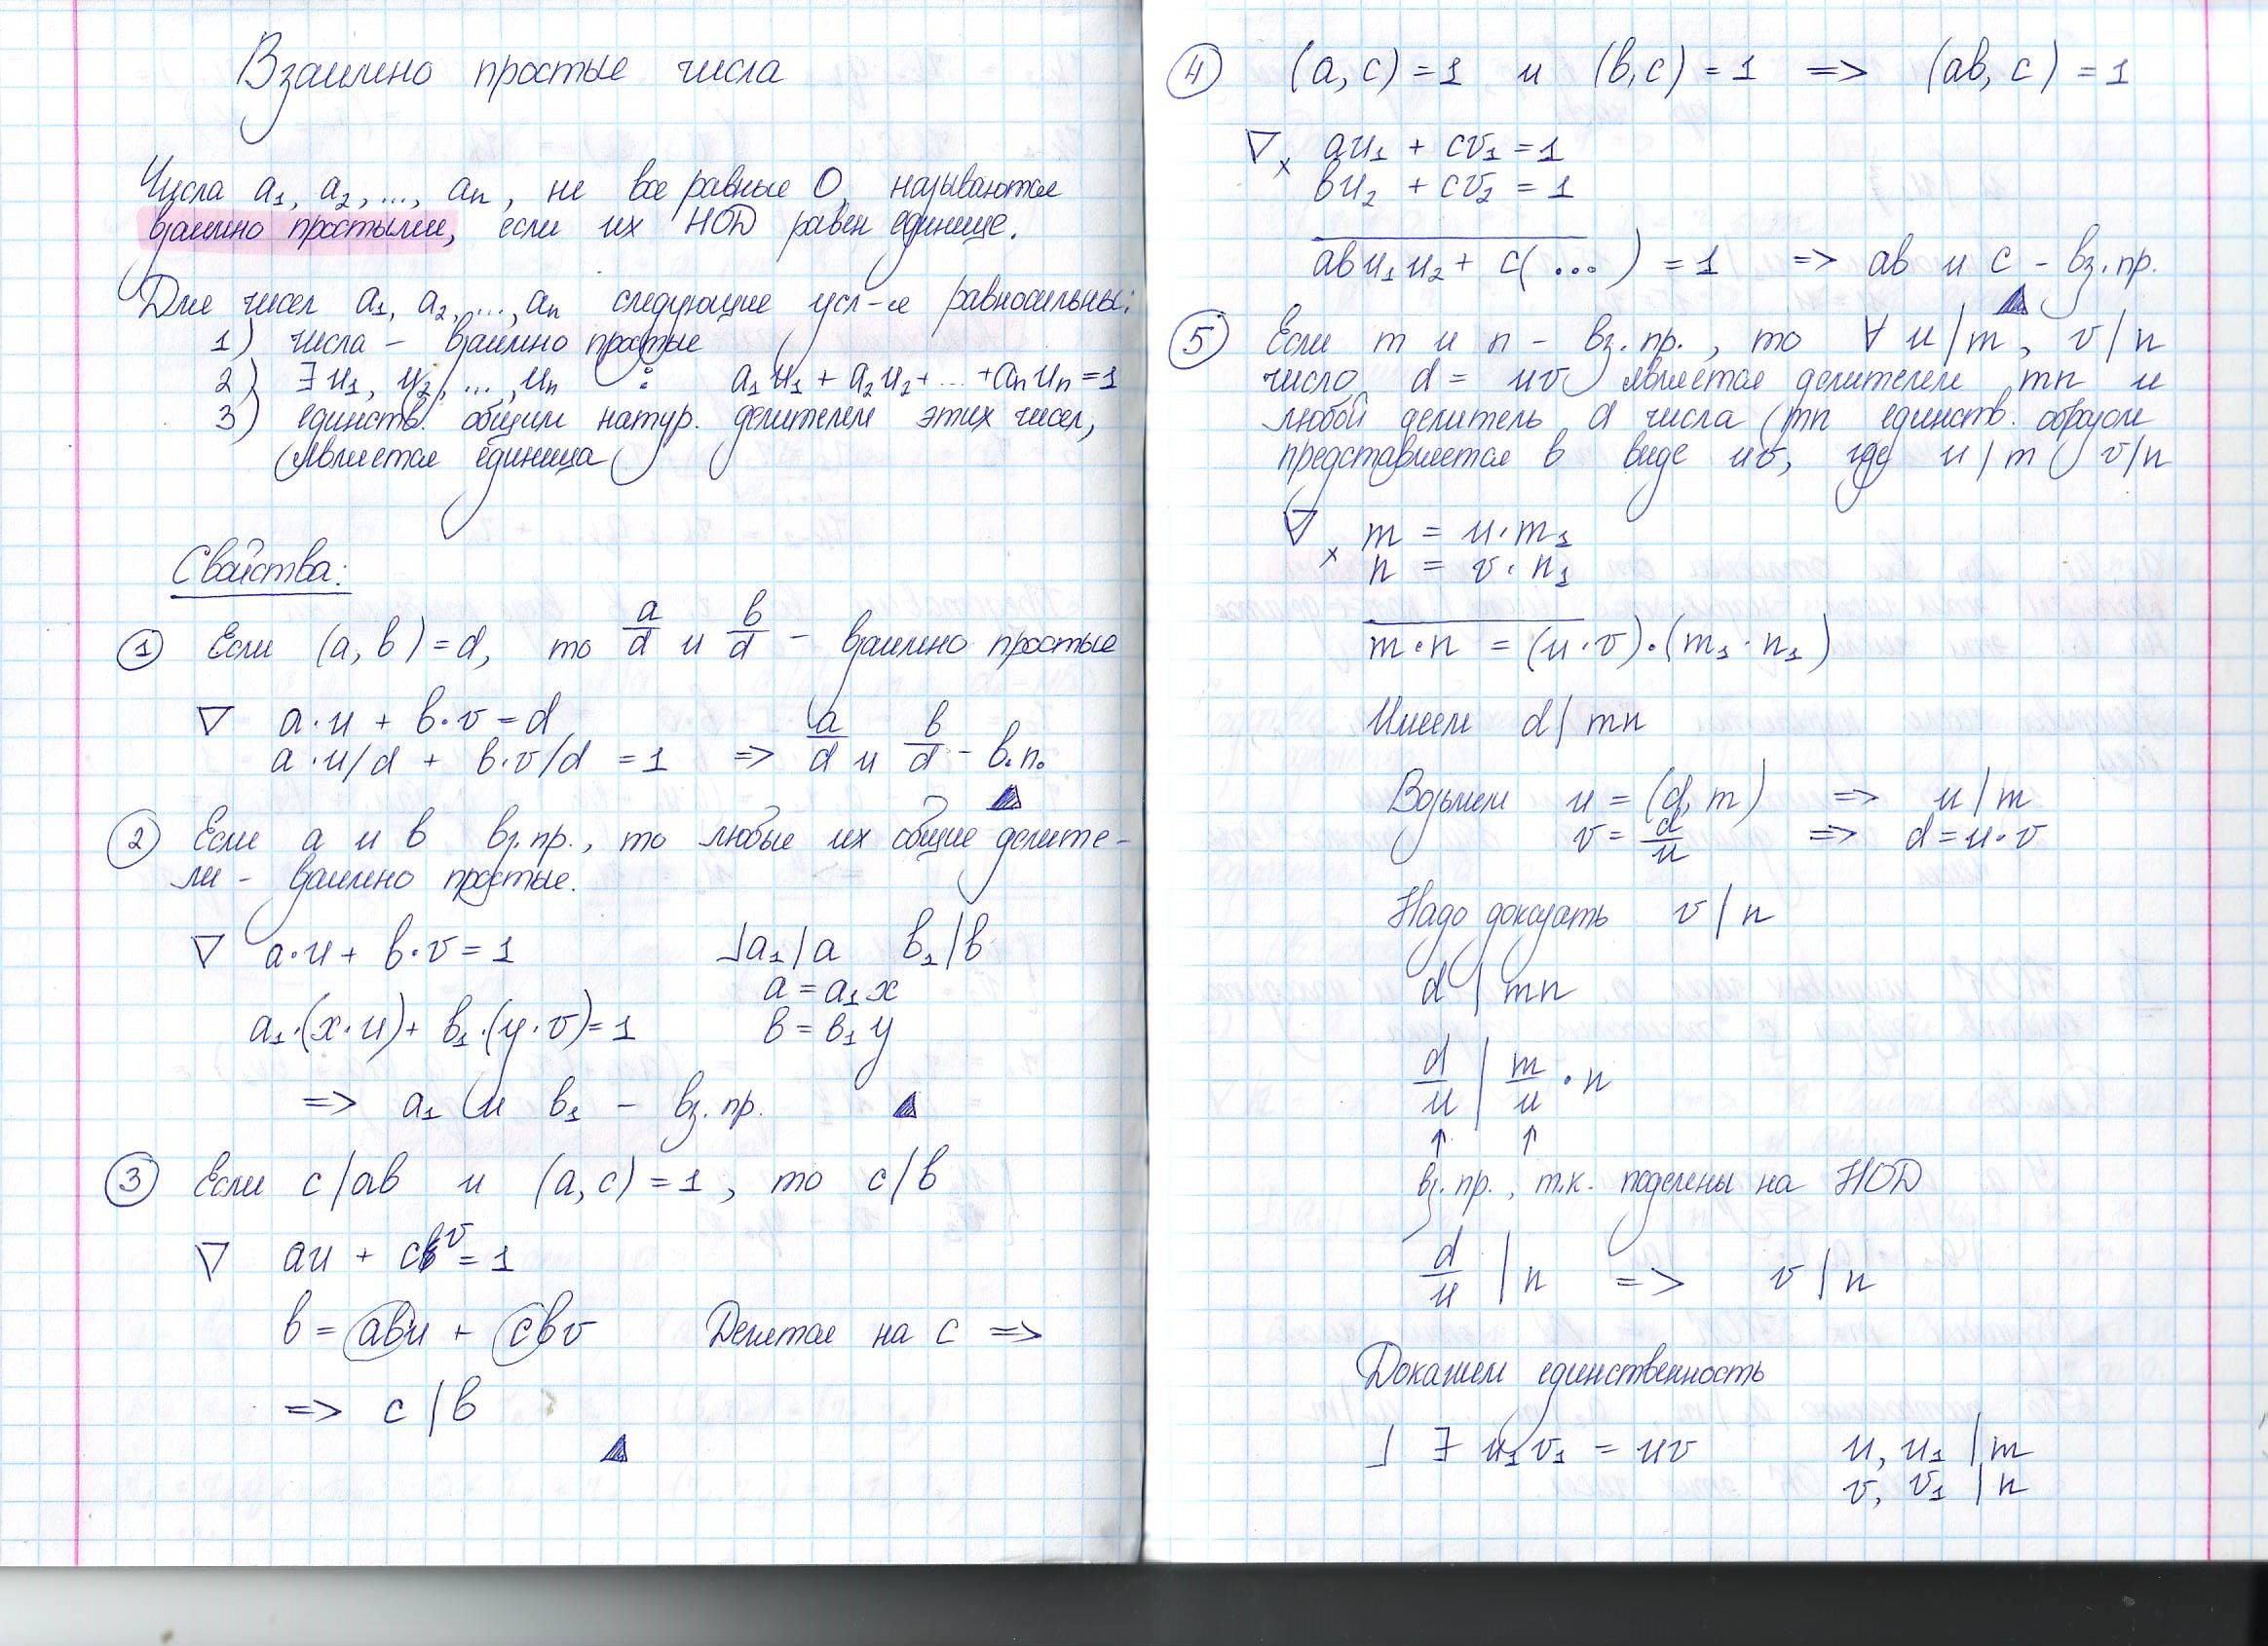 Взаимно простые числа
Числа a₁, a₂, ..., aₙ, не все равные 0, называются
взаимно простыми, если их НОД равен единице.
Для чисел a₁, a₂, ..., aₙ следующие усл-я равносильны:
1) числа – взаимно простые
2) ∃ u₁, u₂, ..., uₙ : a₁u₁ + a₂u₂ + ... + aₙuₙ = 1
3) единств. общим натур. делителем этих чисел,
является единица
Свойства:
① Если (a, b) = d, то a/d и b/d – взаимно простые
▽ a·u + b·v = d
a·u/d + b·v/d = 1 => a/d и b/d – в.п.
▲
② Если a и b вз.пр., то любые их общие делите-
ли – взаимно простые.
▽ a·u + b·v = 1 ⅃ a₁|a b₁|b
a = a₁x
a₁·(x·u) + b₁·(y·v) = 1 b = b₁y
=> a₁ и b₁ – вз.пр. ▲
③ Если c|ab и (a,c) = 1, то c|b
▽ au + cv = 1
b = abu + cbv Делится на c =>
=> c|b
▲
④ (a,c) = 1 и (b,c) = 1 => (ab, c) = 1
▽ × au₁ + cv₁ = 1
bu₂ + cv₂ = 1
abu₁u₂ + c(...) = 1 => ab и c – вз.пр.
▲
⑤ Если m и n – вз.пр., то ∀ u|m, v|n
число d = uv является делителем mn и
любой делитель d числа mn единств. образом
представляется в виде uv, где u|m v|n
▽ × m = u·m₁
n = v·n₁
m·n = (u·v)·(m₁·n₁)
Имеем d|mn
Возьмем u = (d, m) => u|m
v = d/u => d = u·v
Надо доказать v|n
d | mn
d/u | m/u · n
↑ ↑
вз.пр., т.к. поделены на НОД
d/u | n => v|n
Докажем единственность
⅃ ∃ u₁v₁ = uv u, u₁ | m
v, v₁ | n